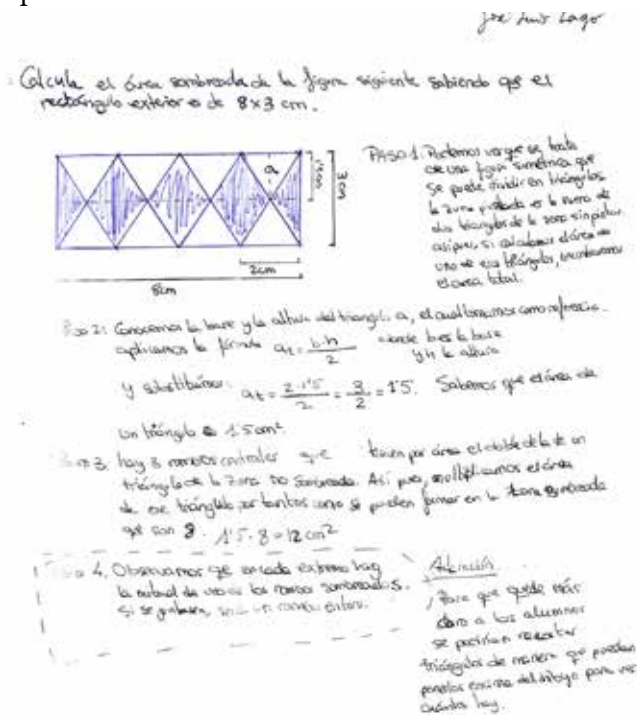 José Luis Lago
Calcula el área sombreada de la figura siguiente sabiendo que el
rectángulo exterior es de 8x3 cm.
a
1'5cm
3cm
2cm
8cm
PASO 1. Podemos ver que se trata
de una figura simétrica que
se puede dividir en triángulos
la zona pintada es la suma de
dos triángulos de la zona sin pintar.
así pues, si calculamos el área de
uno de esos triángulos, encontraremos
el area total.
Paso 2: Conocemos la base y la altura del triángulo a, el cual tomamos como referencia.
aplicamos la fórmula at = b·h / 2 donde b es la base
y h la altura
y substituimos: at = 2·1'5 / 2 = 3 / 2 = 1'5. Sabemos que el área de
un triángulo es 1'5 cm².
Paso 3. hay 3 rombos centrales que tienen por área el doble de la de un
triángulo de la zona no sombreada. Así pues, multiplicamos el área
de ese triángulo por tantos como se pueden formar en la zona sombreada
que son 8. 1'5·8 = 12 cm²
Paso 4. Observamos que en cada extremo hay
la mitad de uno de los rombos sombreados.
Si se juntasen, sería un rombo entero.
Atención
, Para que quede más
claro a los alumnos
se podrían recortar
triángulos de manera que puedan
ponerlos encima del dibujo para ver
cuántos hay.